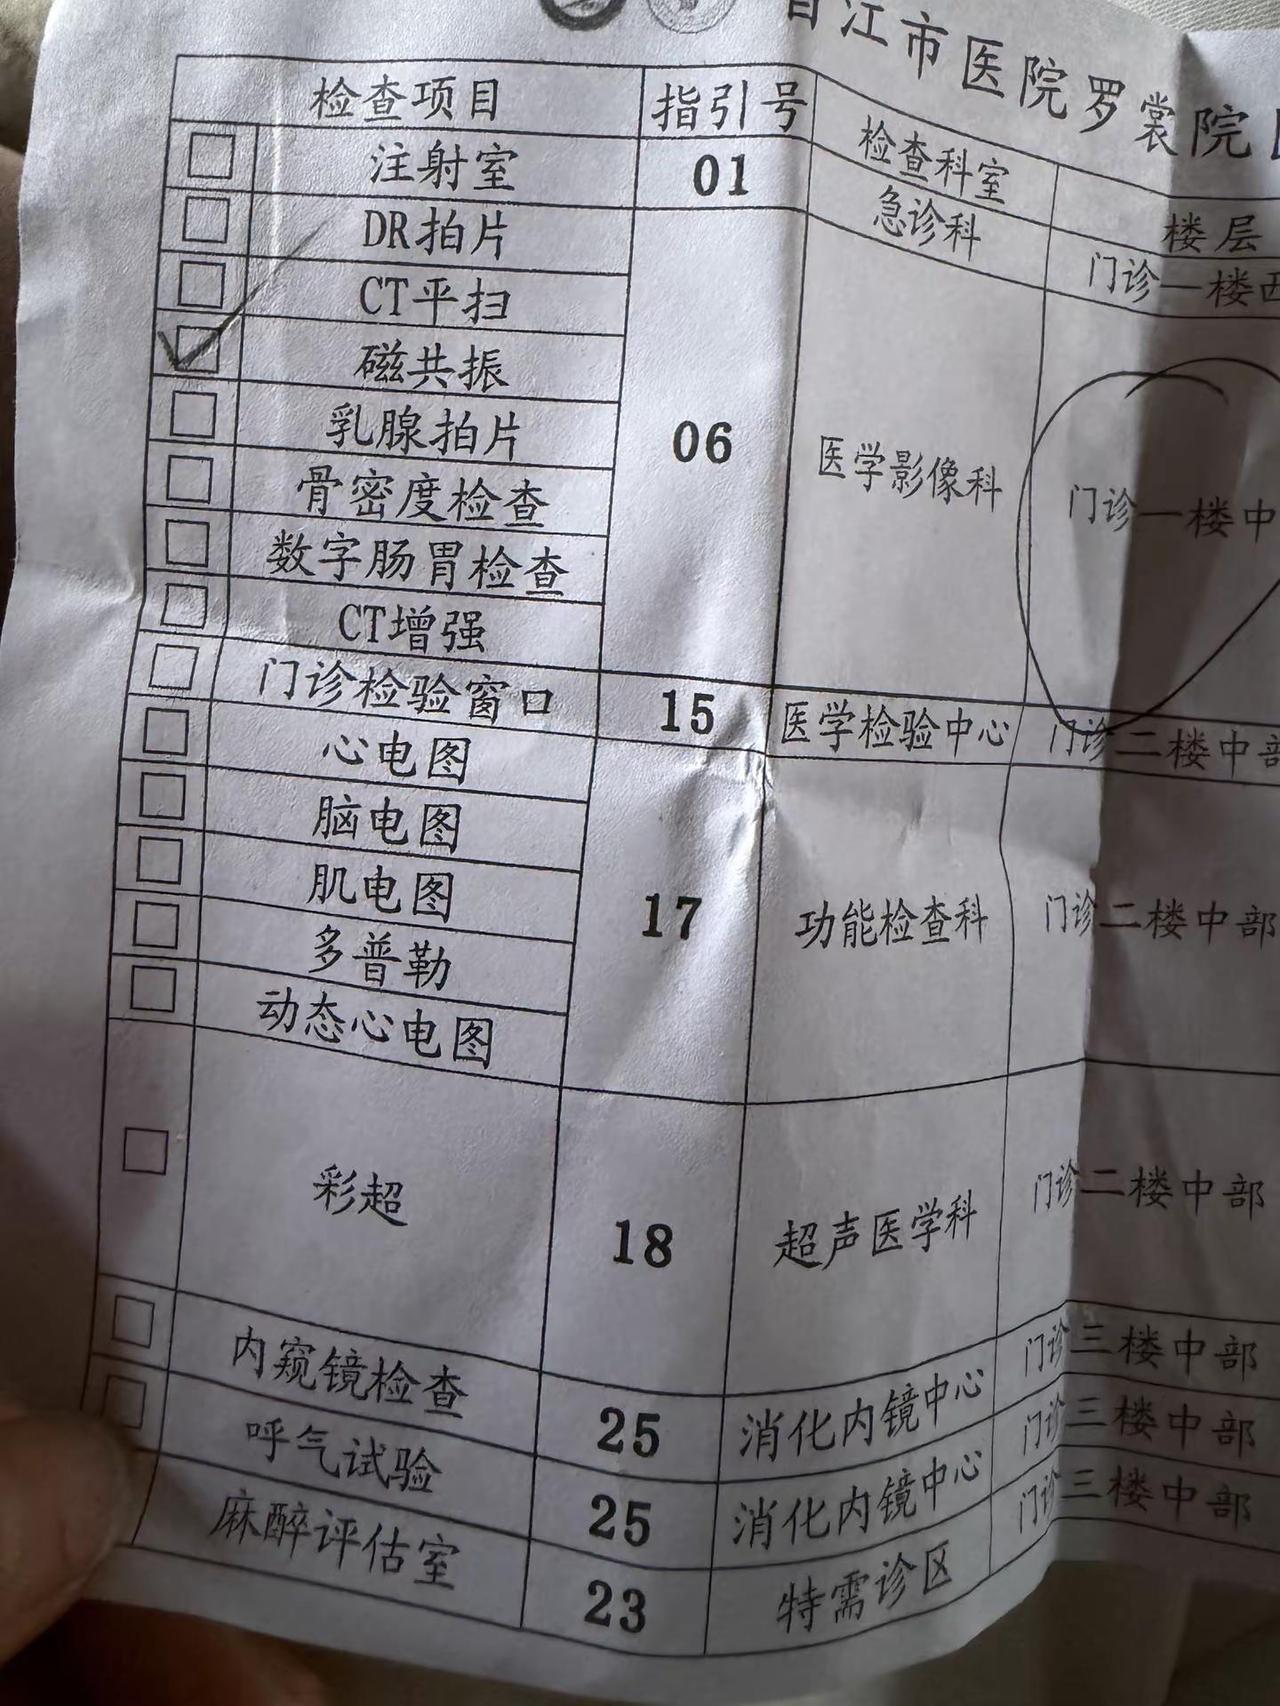 晋江市医院罗裳院
检查项目 指引号 检查科室 楼层
注射室 01 急诊科 门诊一楼西
DR拍片
CT平扫
磁共振
乳腺拍片 06 医学影像科 门诊一楼中
骨密度检查
数字肠胃检查
CT增强
门诊检验窗口 15 医学检验中心 门诊二楼中部
心电图
脑电图
肌电图 17 功能检查科 门诊二楼中部
多普勒
动态心电图
彩超 18 超声医学科 门诊二楼中部
内窥镜检查 25 消化内镜中心 门诊三楼中部
呼气试验 25 消化内镜中心 门诊三楼中部
麻醉评估室 23 特需诊区 门诊三楼中部